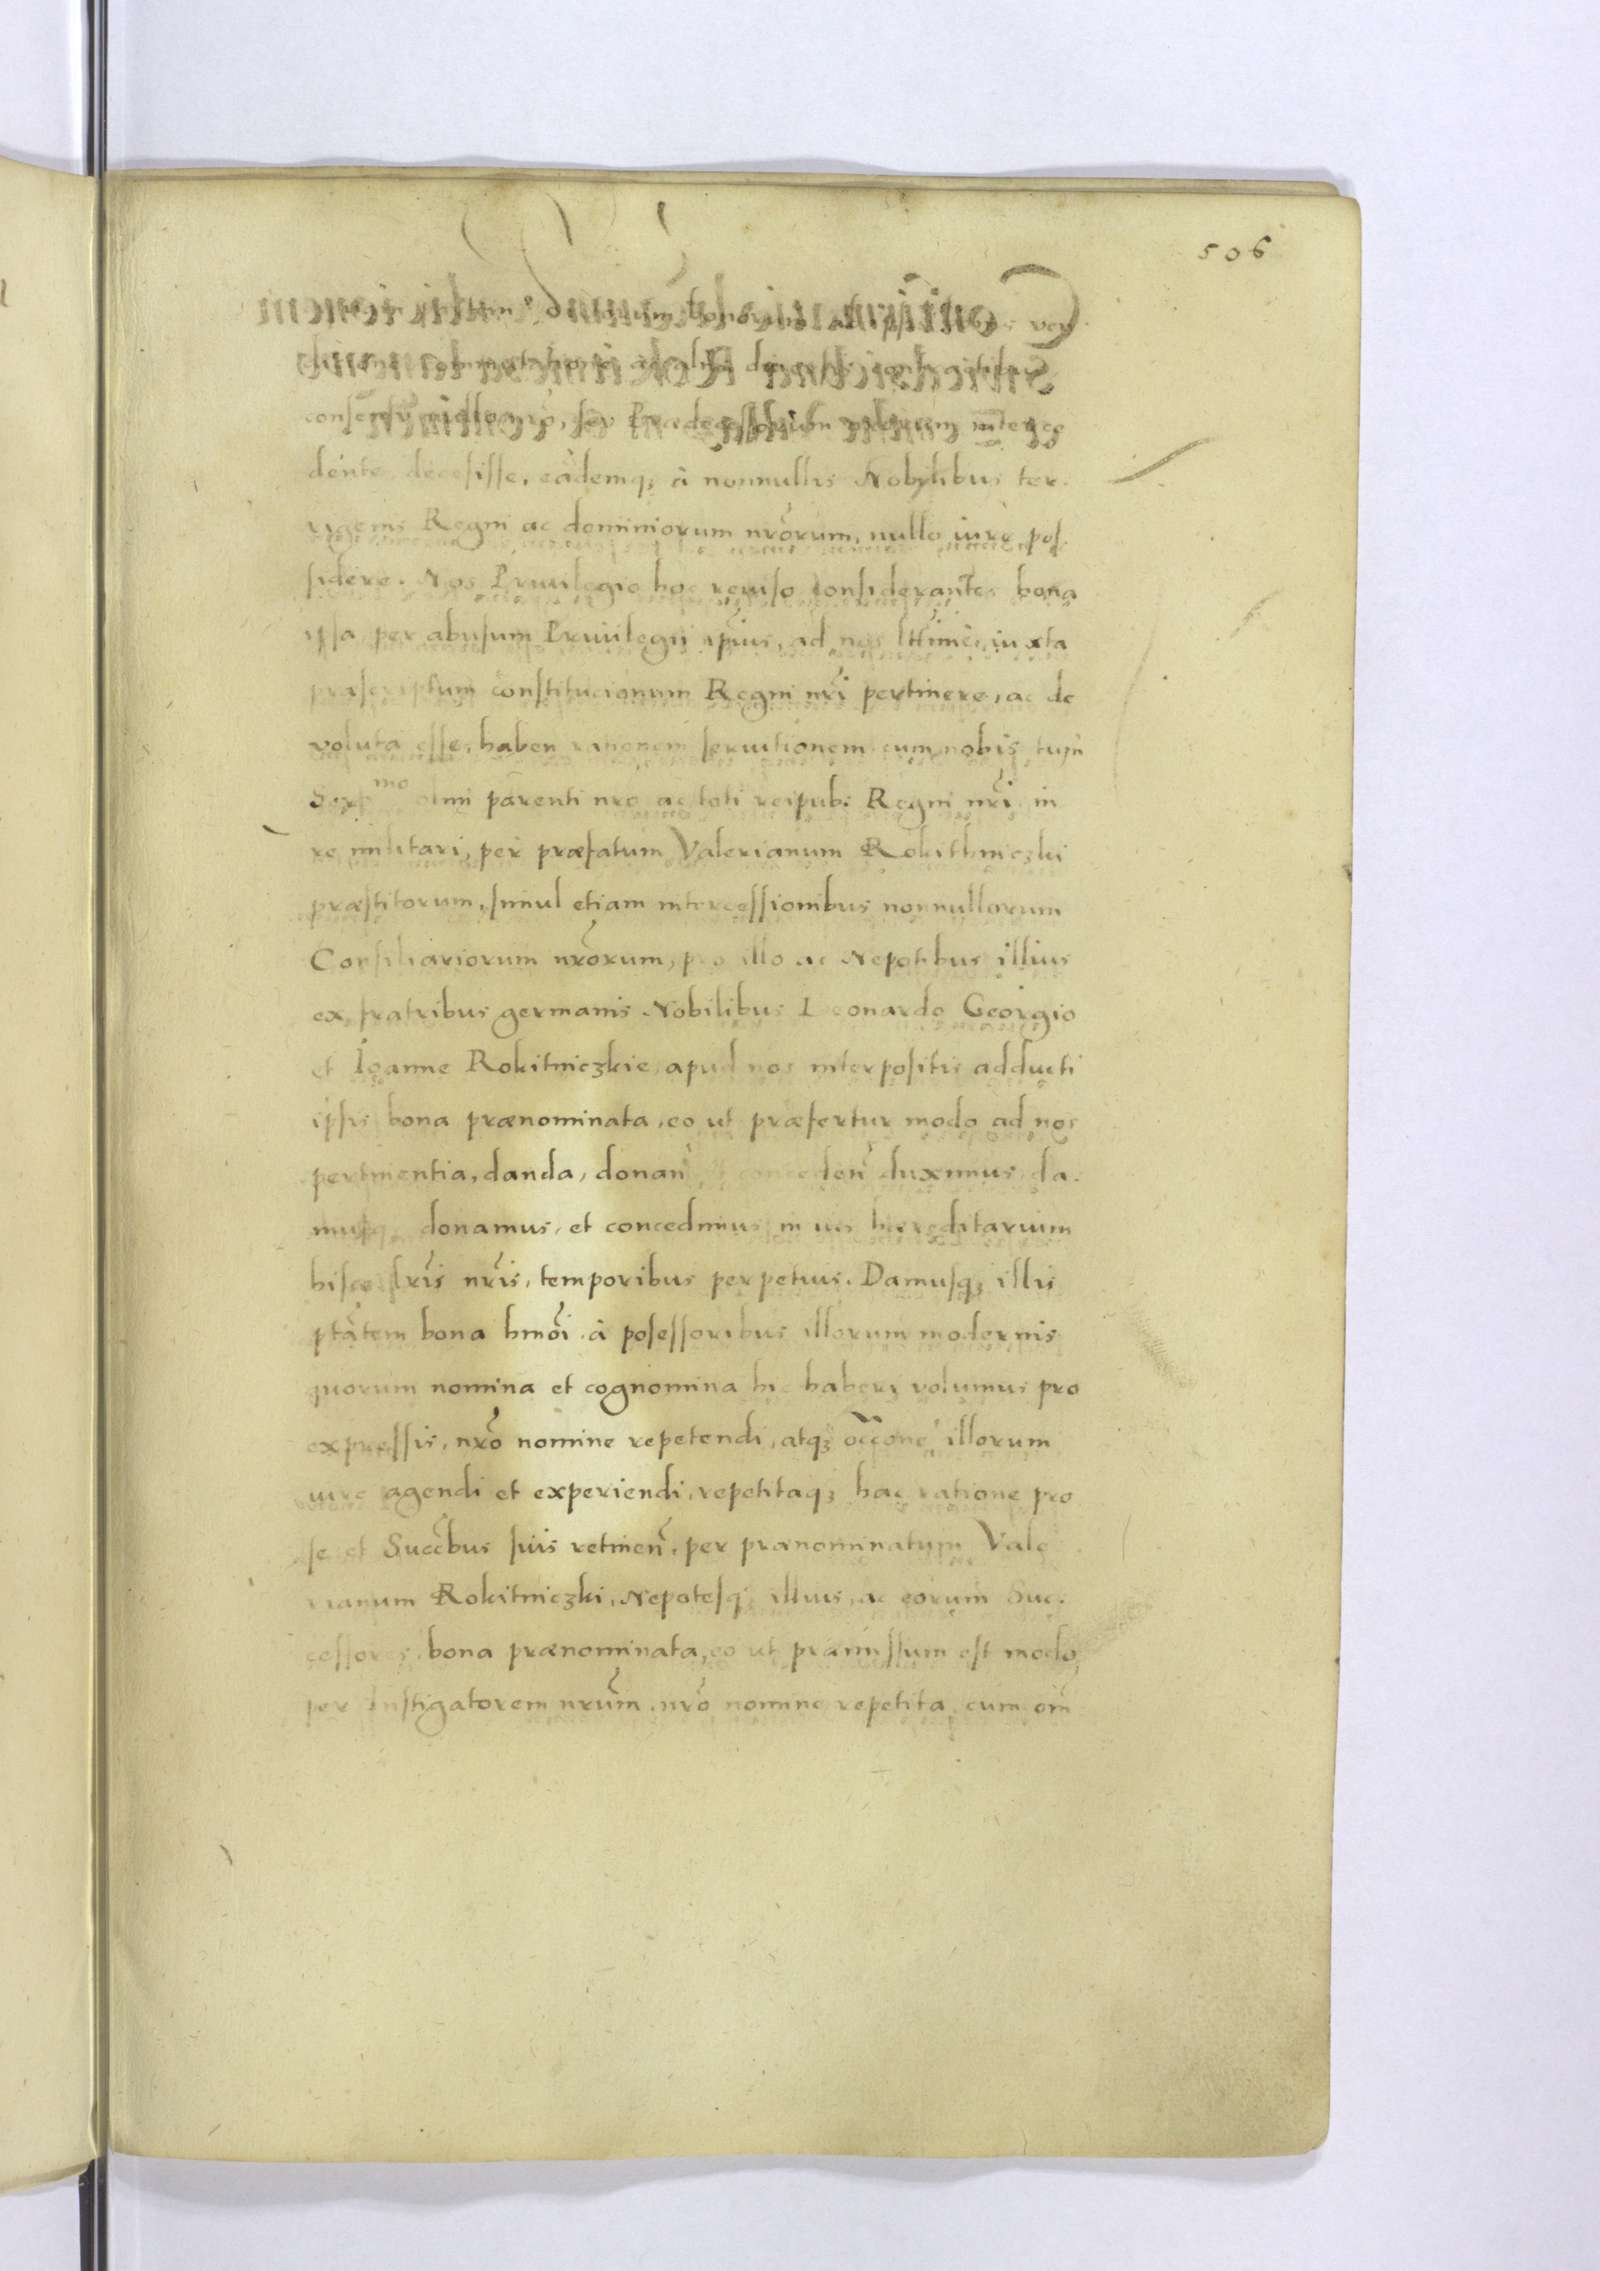 506
consensu nullo nrõ, seu Prædecessorum nrõrum interce
dente decesisse, eademq; à nonnullis Nobylibus ter.
rigenis Regni ac dominiorum nrõrum, nullo iure pos.
sidere. Nos Priuilegio hoc reuiso considerantes bona
ipsa per abusum Priuilegii ipsius, ad nos lttime, iuxta
præscriptum constitucionum Regni nrĩ pertinere, ac de
voluta esse, haben rationem seruitionem cum nobis tum
Serᵐᵒ olim parenti nro ac toti reipub: Regni nrĩ in
re militari, per præfatum Valerianum Rokithniczki
præstitorum, simul etiam intercessionibus nonnullorum
Consiliariorum nrõrum, pro illo ac Nepotibus illius
ex fratribus germanis Nobilibus Leonardo Georgio
et Ioanne Rokitniczkie apud nos interpositis adducti
ipsis bona prænominata, eo ut præfertur modo ad nos
pertinentia, danda, donan̄ et conceden̄ duximus, da.
musq; donamus, et concedimus in ius hæreditarium
hisce lrĩs nrĩs, temporibus perpetuis. Damusq; illis
ptãtem bona hmõi à posessoribus illorum modernis
quorum nomina et cognomina hic habere volumus pro
expressis, nrõ nomine repetendi, atq; occõne illorum
iure agendi et experiendi, repetitaq; hac ratione pro
se et Succ̃bus suis retinen̄, per prænominatum Vale
rianum Rokitniczki, Nepotesq; illius, ac eorum Suc.
cessores, bona prænominata, eo ut præmissum est modo,
per Instigatorem nrũm, nrõ nomine repetita, cum om̃